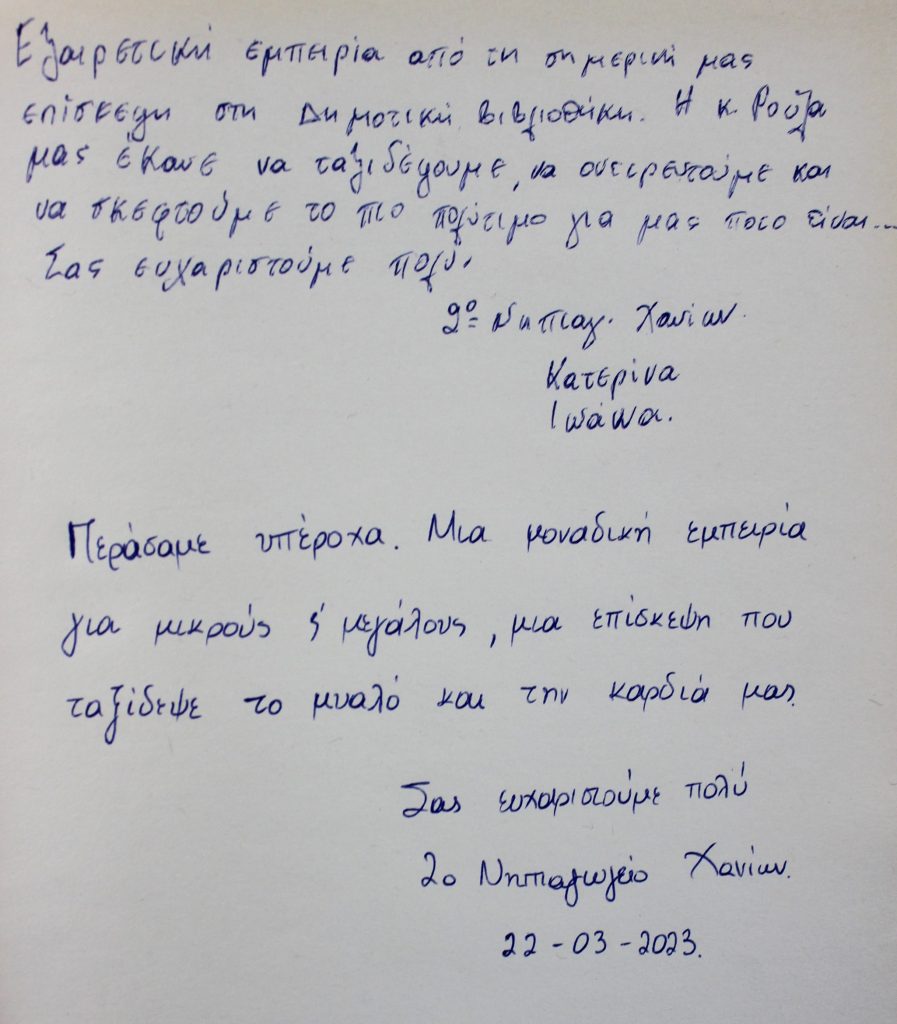 Εξαιρετική εμπειρία από τη σημερινή μας
επίσκεψη στη Δημοτική Βιβλιοθήκη. Η κ. Ρούζα
μας έκανε να ταξιδέψουμε, να ονειρευτούμε και
να σκεφτούμε το πιο πολύτιμο για μας ποιο είναι...
Σας ευχαριστούμε πολύ.
2ο Νηπιαγ. Χανίων.
Κατερίνα
Ιωάννα.
Περάσαμε υπέροχα. Μια μοναδική εμπειρία
για μικρούς & μεγάλους, μια επίσκεψη που
ταξίδεψε το μυαλό και την καρδιά μας.
Σας ευχαριστούμε πολύ
2ο Νηπιαγωγείο Χανίων.
22-03-2023.